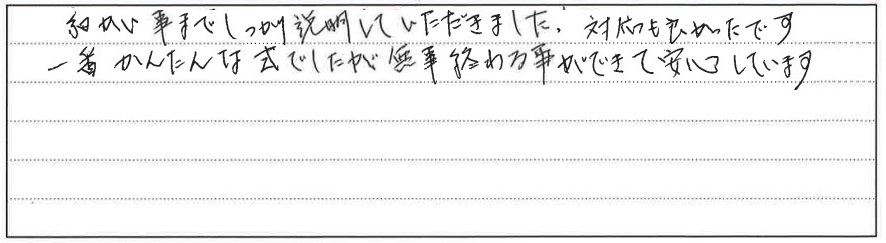 細かい事までしっかり説明していただきました。対応も良かったです
一番かんたんな式でしたが無事終わる事ができて安心しています